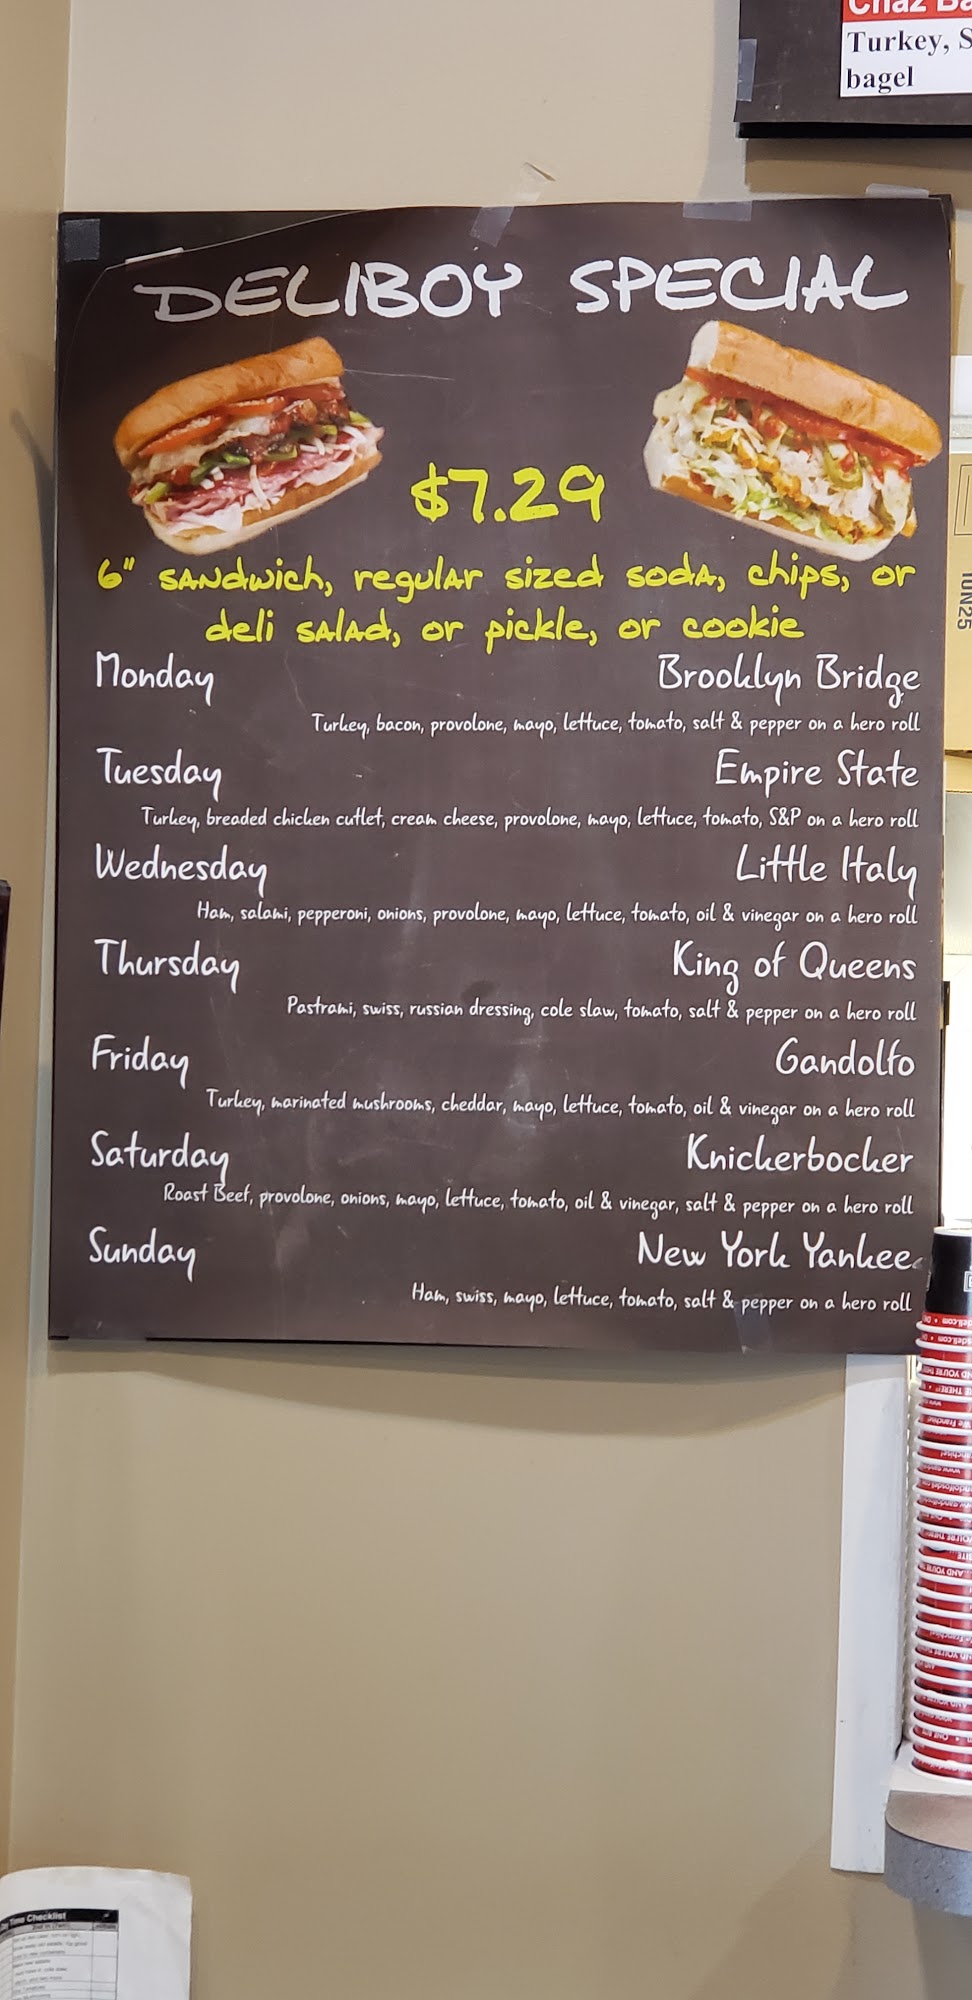 Turkey, S
bagel
DELIBOY SPECIAL
$7.29
6" sandwich, regular sized soda, chips, or
deli salad, or pickle, or cookie
Monday Brooklyn Bridge
Turkey, bacon, provolone, mayo, lettuce, tomato, salt & pepper on a hero roll
Tuesday Empire State
Turkey, breaded chicken cutlet, cream cheese, provolone, mayo, lettuce, tomato, S&P on a hero roll
Wednesday Little Italy
Ham, salami, pepperoni, onions, provolone, mayo, lettuce, tomato, oil & vinegar on a hero roll
Thursday King of Queens
Pastrami, swiss, russian dressing, cole slaw, tomato, salt & pepper on a hero roll
Friday Gandolfo
Turkey, marinated mushrooms, cheddar, mayo, lettuce, tomato, oil & vinegar on a hero roll
Saturday Knickerbocker
Roast Beef, provolone, onions, mayo, lettuce, tomato, oil & vinegar, salt & pepper on a hero roll
Sunday New York Yankee
Ham, swiss, mayo, lettuce, tomato, salt & pepper on a hero roll
Time Checklist